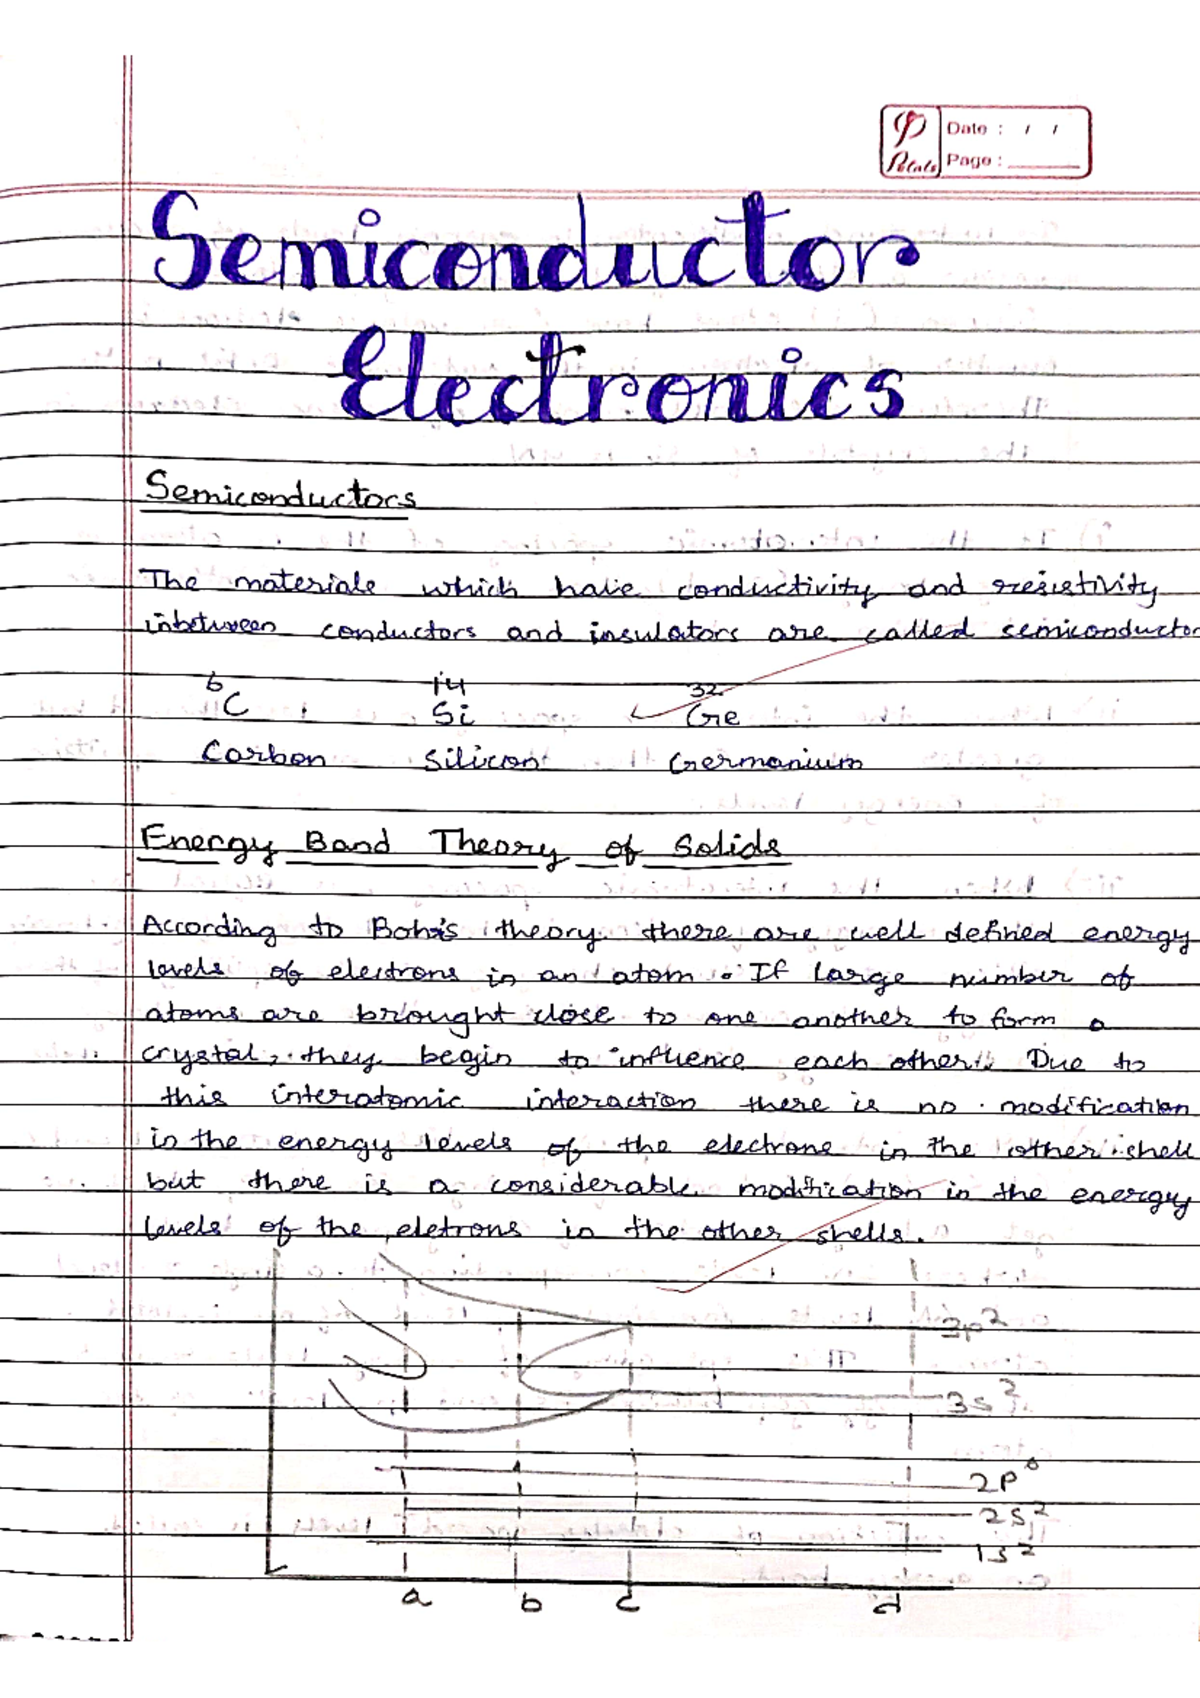 Date : / /
Page :
Semiconductor
Electronics
Semiconductors
The materials which have conductivity and resistivity
inbetween conductors and insulators are called semiconductor
6 14 32
C Si Ge
Carbon Silicon Germanium
Energy Band Theory of Solids
According to Bohr's theory there are well defined energy
levels of electrons in an atom. If large number of
atoms are brought close to one another to form a
crystal, they begin to influence each other. Due to
this interatomic interaction there is no modification
in the energy levels of the electrons in the other shell
but there is a considerable modification in the energy
levels of the eletrons in the other shells.
3p²
3s²
2p⁶
2s²
1s²
a b c d